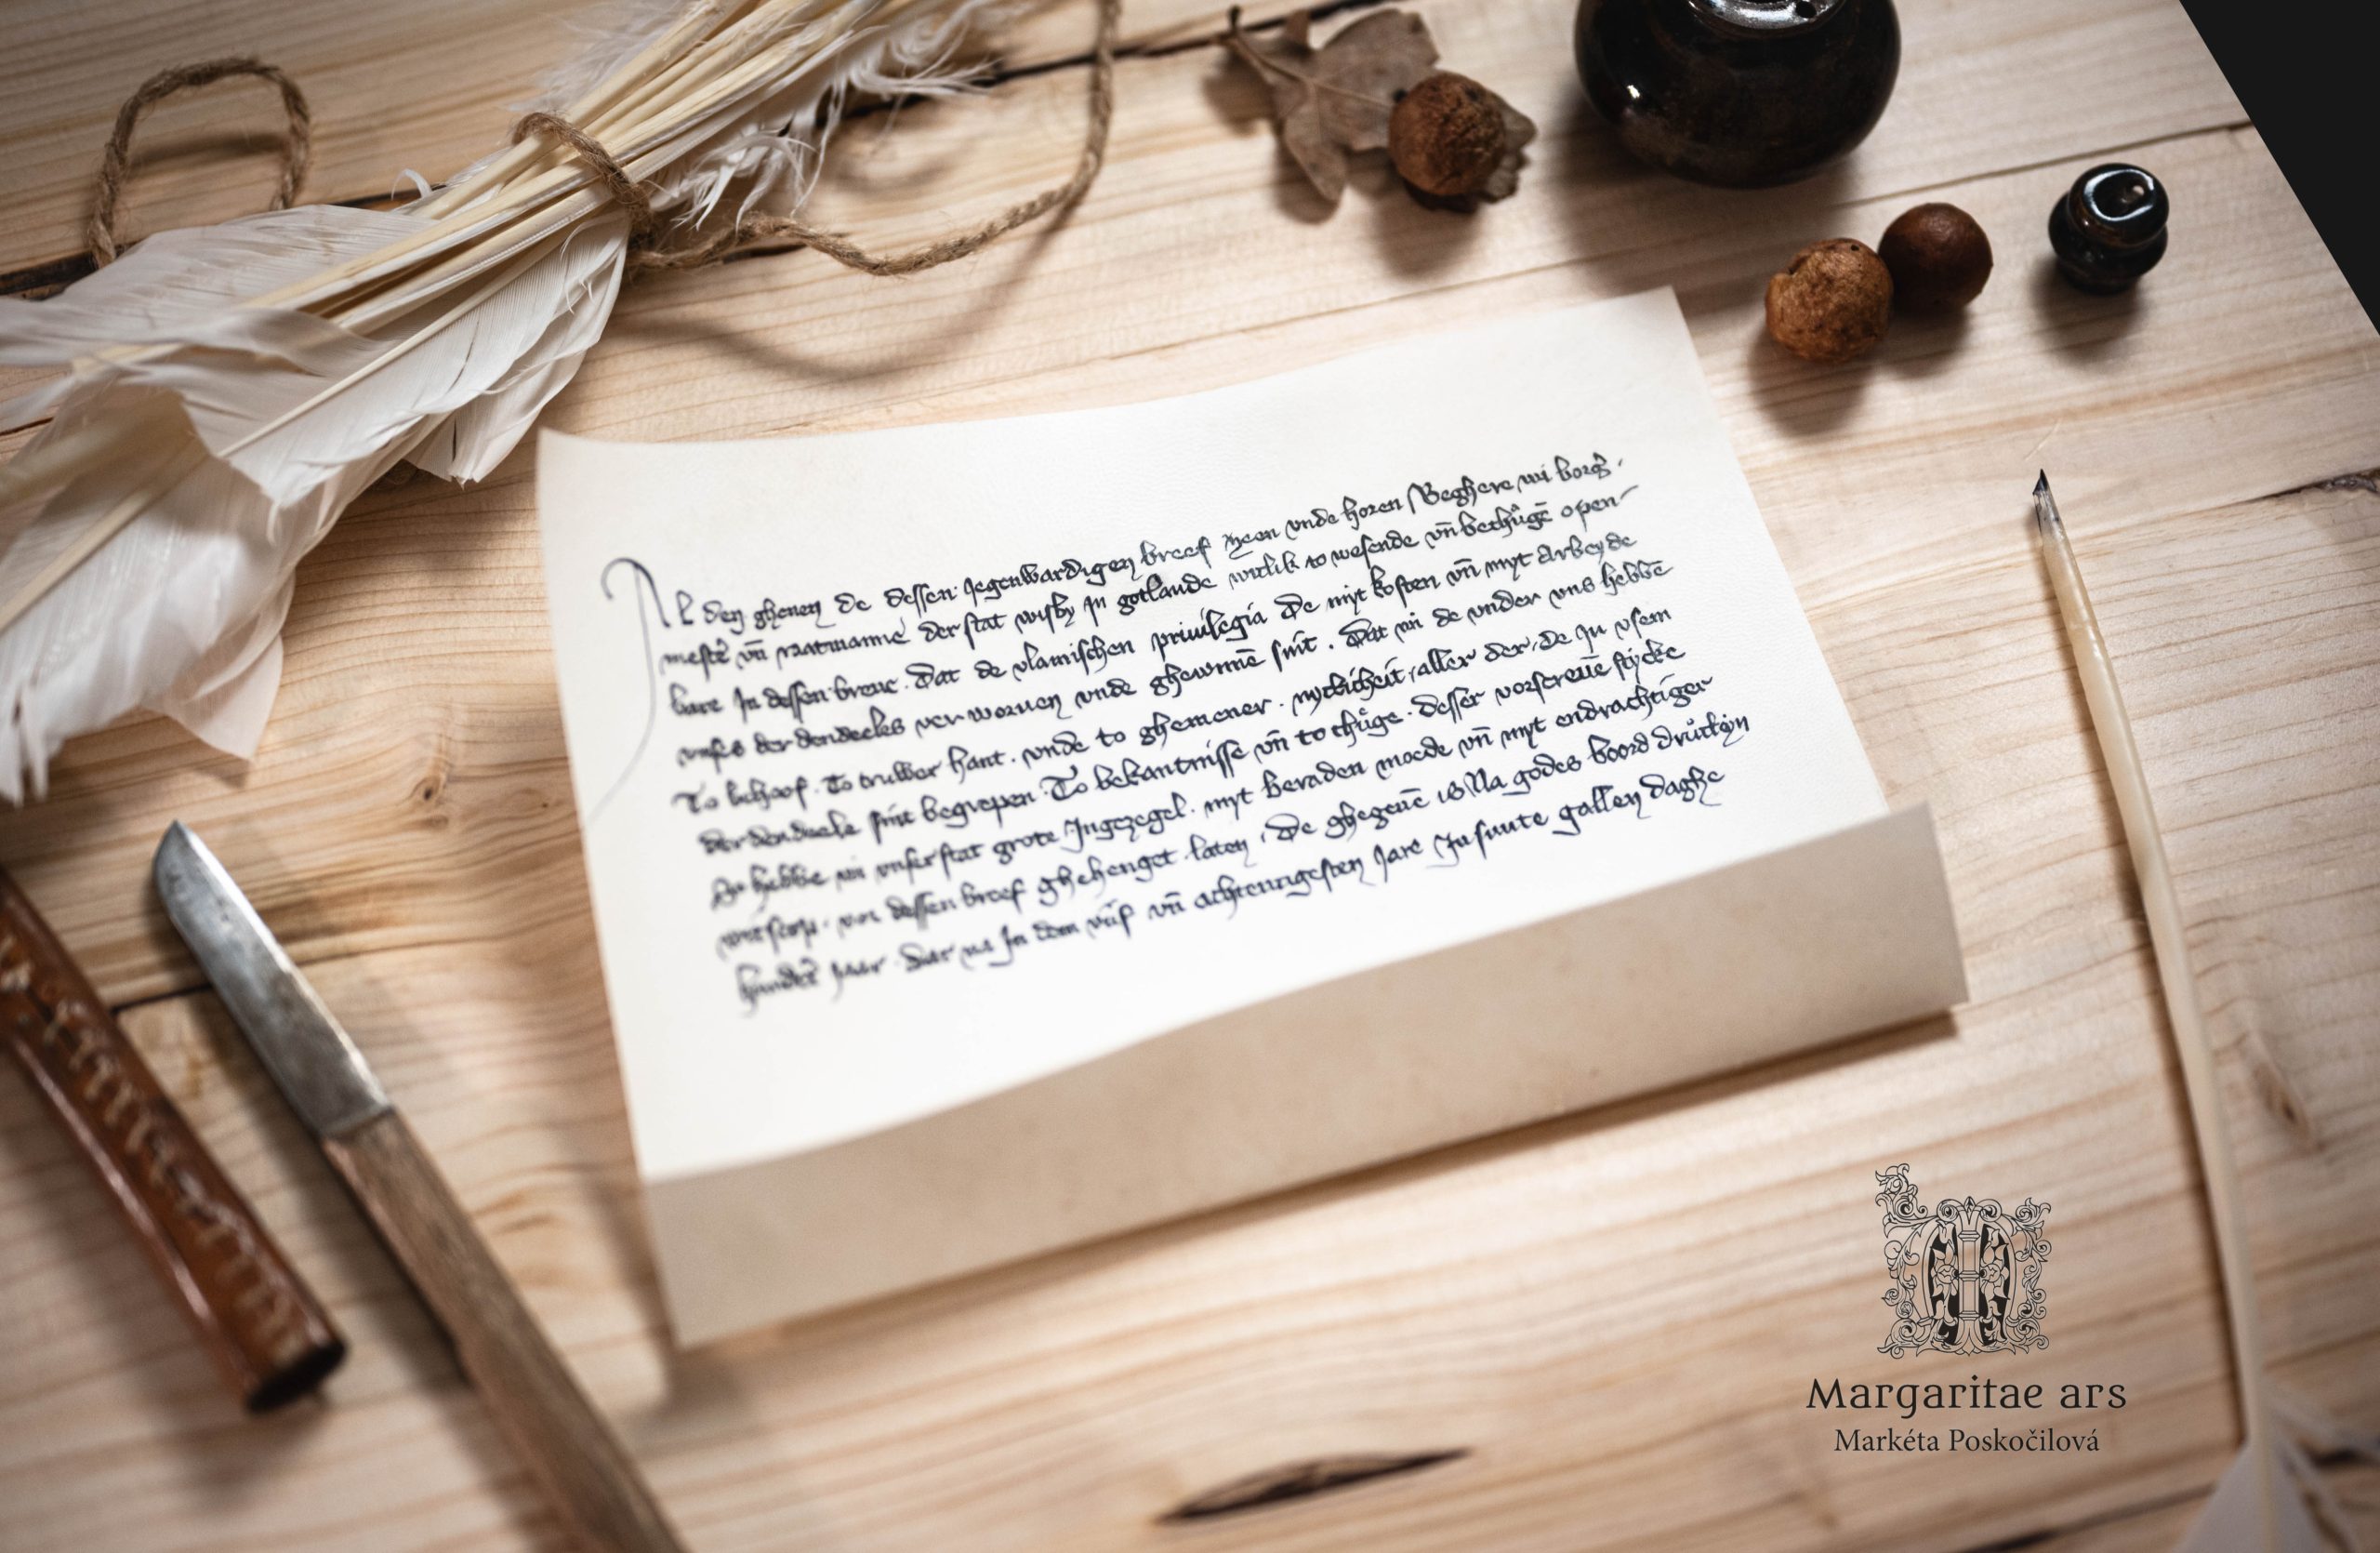 Al den ghenen de dessen Jegenwardigen breef zeen vnde horen Beghere wi borg̃
mestẽ vn̄ raatmanne der stat wisby Jn gotlande witlik to wesende vn̄ bethůgē open
bare Jn dessen breue . Dat de vlamischen priuilegia De myt kosten vn̄ myt Arbeyde
vnses der dendeeles verworuen vnde ghewunnē sint . Dat wi de vnder vns hebbē
To behoof . To truwer hant . vnde to ghemener . nytlicheit , aller der , de Ju vsem
derdendeele sint begrepen . To bekantnisse vn̄ to thůge . desser vorscreuē stycke
So hebbe wi vnser stat grote Jngezegel . myt beraden moede vn̄ myt endrachtiger
witscop . vor dessen breef ghehenget laten , De ghegeuē is Na godes boord drůtteyn
hundet Jaar . Dar na Jn dem viif vn̄ achtentigesten Jare Jn sunte gallen daghe
Margaritae ars
Markéta Poskočilová